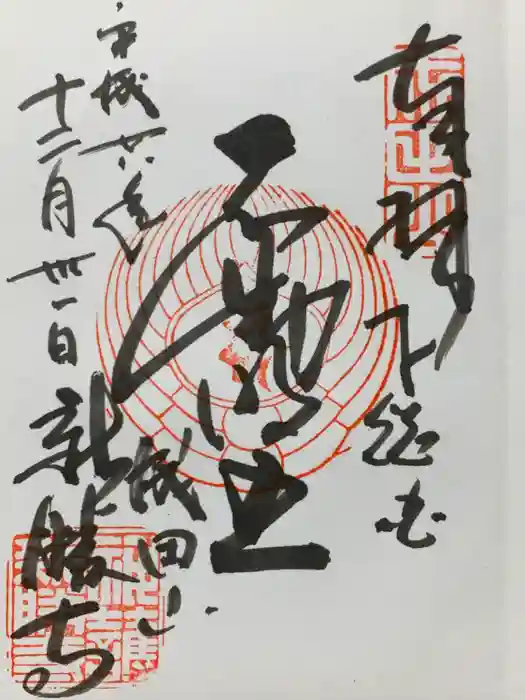 奉拝 下総国
不動明王
平成廿八年
十二月卅一日
成田山
新勝寺